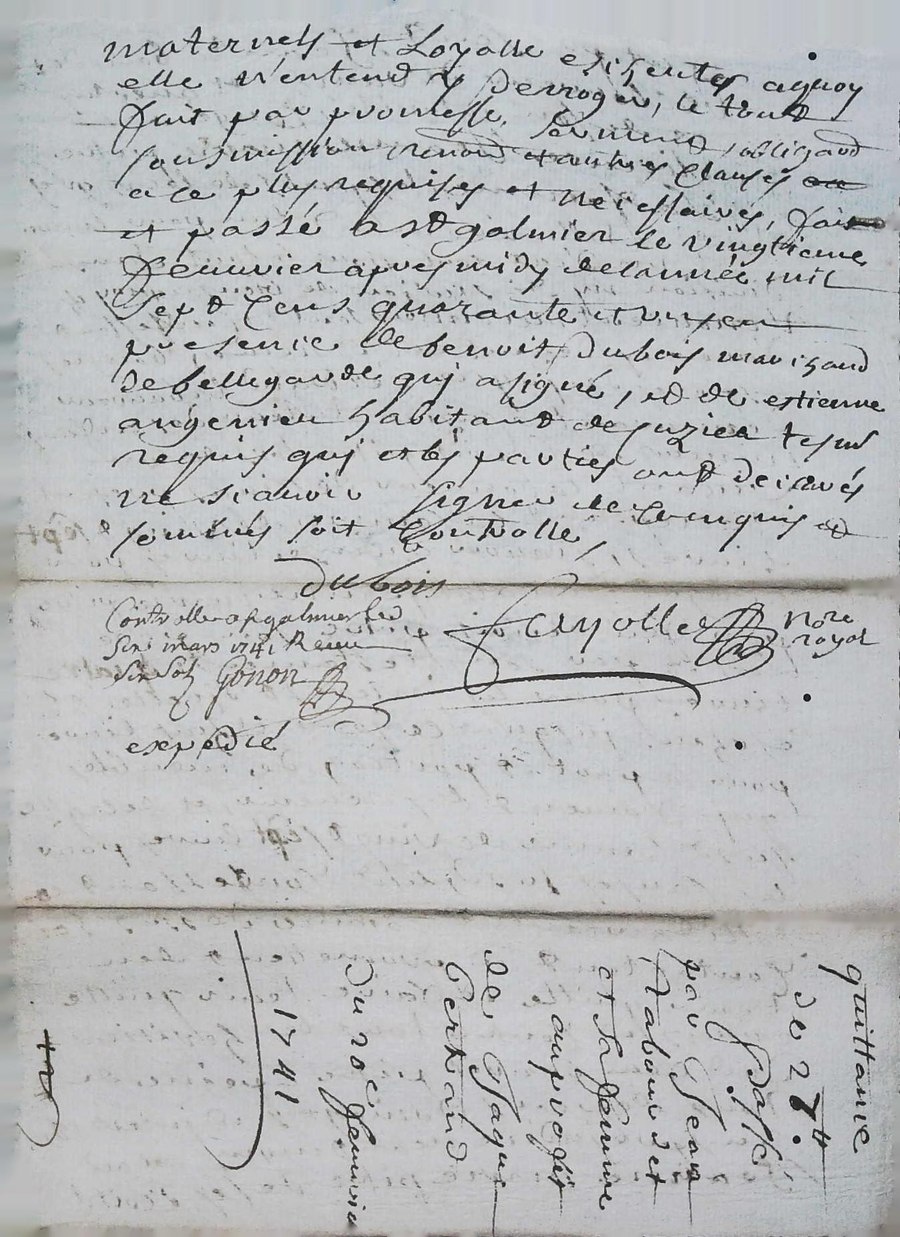 maternels et Loyalle escheutes aquoy
elle n'entend y derroger, le tout
fait par promesse, serment, obligaõn
sousmission, renonõn et autres clauses
a ce plus requises et necessaires, fait
et passé a st galmier le vingtieme
Januvier apres midy de lannée mil
sept Cens quarante et un en
presence de benoit dubois marchand
de bellegarde qui a signé, et de estienne
habitant de tesm
requis qui et les parties ont declarés
ne scavoir signer de ce enquis et
sommés soit Controlle,
dubois
Controlle a st galmier le
mars 1741 Receu
six sols Gonon
Nore
royal
expedié
quittance
de 27tt
passée
par Jean
et sa femme
au profit
de Jaque
du 20e Januvier
1741